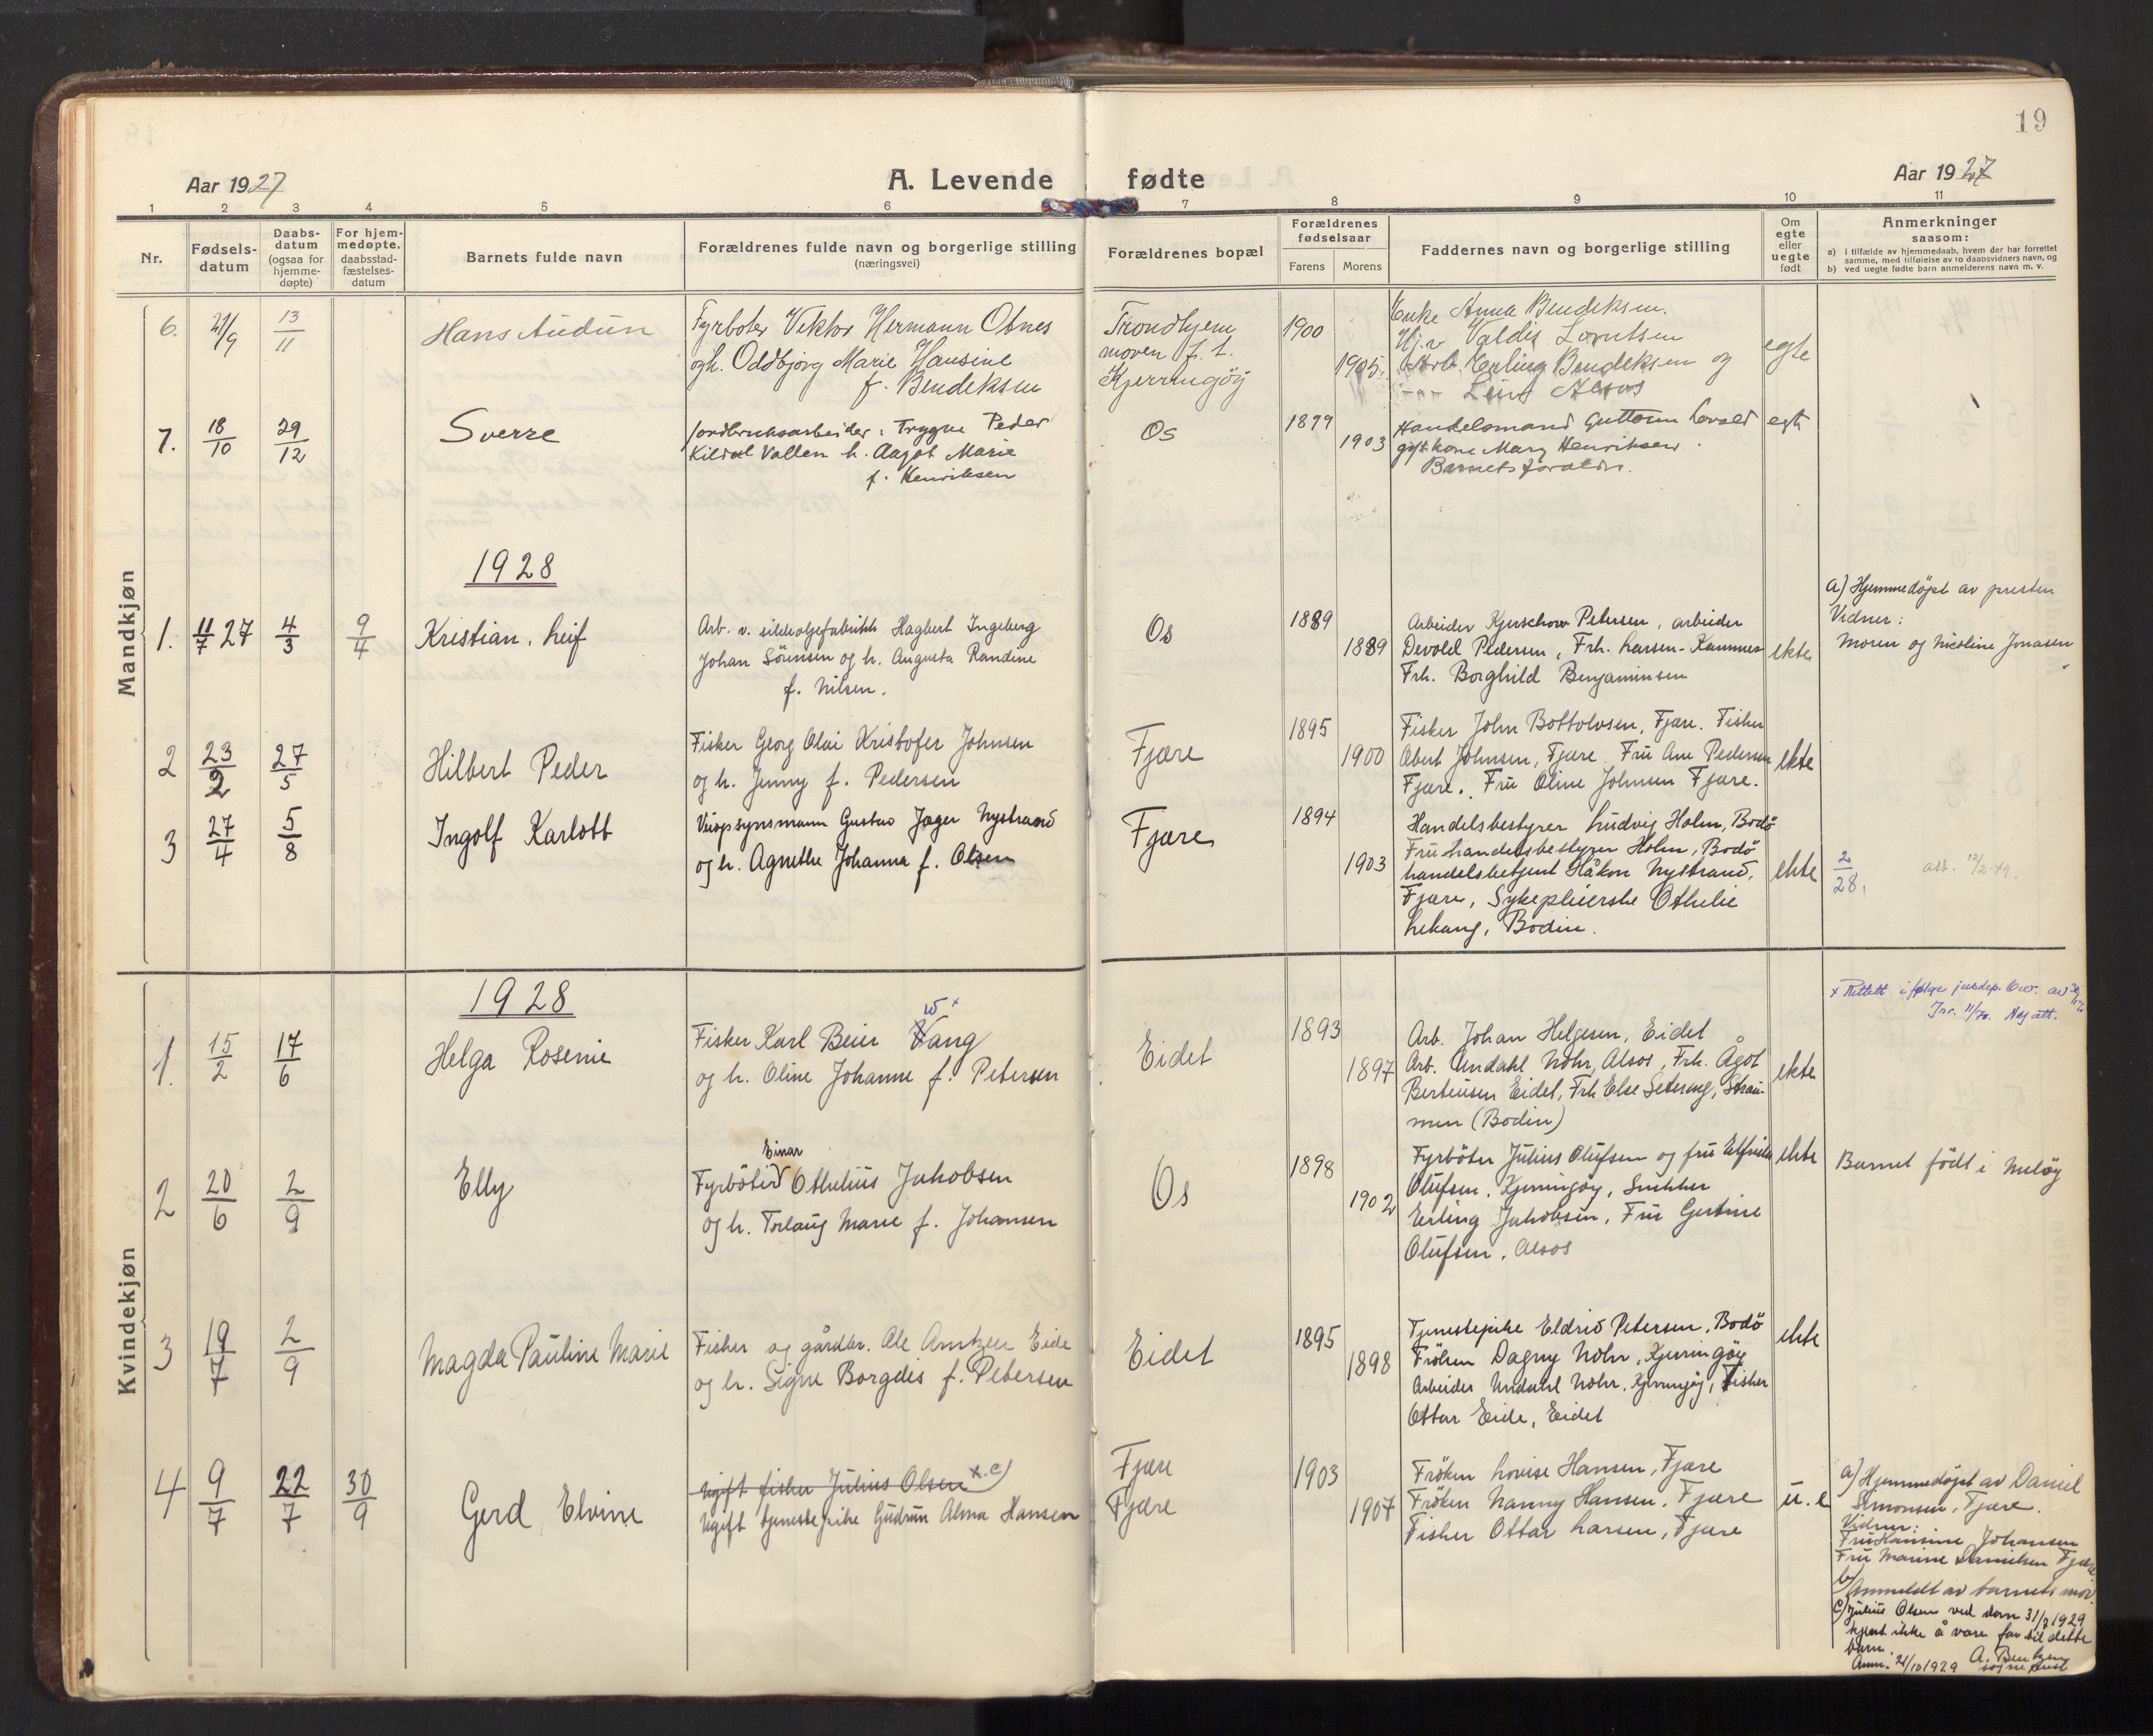 19
Aar 1927
A. Levende fødte
Aar 1927
1 2 3 4 5 6 7 8 9 10 11
Nr.
Fødsels-
datum
Daabs-
datum
(ogsaa for
hjemme-
døpte)
For hjem-
medøpte.
daabsstad-
fæstelses-
datum
Barnets fulde navn
Forældrenes fulde navn og borgerlige stilling
(næringsvei)
Forældrenes bopæl
Forældrenes
fødselsaar
Farens Morens
Faddernes navn og borgerlige stilling
Om
egte
eller
uegte
født
Anmerkninger
saasom:
a) i tilfælde av hjemmedaab, hvem der har forrettet
samme, med tilføielse av to daabsvidners navn, og
b) ved uegte fødte barn anmelderens navn m. v.
Mandkjøn
6. 21/9 13/11 Hans Audun
Fyrboter Viktor Hermann Otnes
og h. Oddbjørg Marie Hansine
f. Bendeksen
Trondhjem
moren f. t.
Kjerringöy
1900
1905
Enke Anna Bendeksen.
Hj.v Valdis Lorntsen
Arb. Erling Bendeksen og
Alsos
egte
7. 18/10 29/12 Sverre
Jordbruksarbeider Trygve Peder
Kildal Vollen h. Aagot Marie
f. Henriksen
Os
1899
1903
Handelsmand Guttorm Lovold
gift kone Mary Henriksen.
Barnets foreldre.
egte
1928
1. 11/7 27 4/3 9/4 Kristian. Leif
Arb. v. sildeoljefabrikk Hagbert Ingeberg
Johan Sörensen og h. Augusta Randine
f. Nilsen.
Os
1889
1889
Arbeider Kjerschow Petersen, arbeider
Devold Pedersen, Frk. Larsen-Kammer
Frk. Borghild Benjaminsen
ekte
a) Hjemmedöpt av presten
Vidner:
Moren og Nicoline Jonasen
2 23/2 27/5 Hilbert Peder
Fisker Georg Olai Kristofer Johnsen
og h. Jenny f. Pedersen
Fjære
1895
1900
Fisker John Bottolvsen, Fjære. Fisker
Obert Johnsen, Fjære. Fru Ane Pedersen
Fjære. Fru Oline Johnsen Fjære.
ekte
3 27/4 5/8 Ingolf Karlott
Veiopsynsmann Gustav Jæger Nystrand
og h. Agnethe Johanna f. Olsen
Fjære
1894
1903
Handelsbestyrer Ludvig Holm, Bodö
Fru handelsbestyrer Holm, Bodö
handelsbetjent Håkon Nystrand,
Fjære, Sykepleierske Othelie
Lekang, Bodin.
ekte
2/28.
att. 12/2-49.
Kvindekjøn
1928
1. 15/2 17/6 Helga Rosenie
W +
Fisker Karl Beier Vang
og h. Oline Johanne f. Petersen
Eidet
1893
1897
Arb. Johan Helgesen, Eidet
Arb. Undahl Nohr, Alsos, Frk. Ågot
Berteusen Eidet, Frk Else Seteraug, Strau-
men (Bodin)
ekte
+ Rettet ifølge jusdep. bev. av
Jnr. 11/70. Nej att.
2 20/6 2/9 Elly
Einar
Fyrböter Othelius Jakobsen
og h. Torlaug Marie f. Johansen
Os
1898
1902
Fyrböter Julius Olufsen og fru Elfrida
Olufsen, Kjerringöy, Snekker
Erling Jakobsen, Fru Gertine
Olufsen, Alsos
ekte
Barnet födt i Melöy
3 19/7 2/9 Magda Pauline Marie
Fisker og gårdbr. Ole Arntzen Eide
og h. Signe Borgdis f. Petersen
Eidet
1895
1898
Tjenestepike Eldrid Petersen, Bodö
Fröken Dagny Nohr, Kjerringöy
Arbeider Undahl Nohr, Kjerringöy, Fisker
Ottar Eide, Eidet
ekte
4 9/7 22/7 30/9 Gerd Elvine
Ugift fisker Julius Olsen x. c)
Ugift tjenestepike Gudrun Alma Hansen
Fjære
Fjære
1903
1907
Fröken Lovise Hansen, Fjære
Fröken Nanny Hansen, Fjære
Fisker Ottar Larsen, Fjære
u. e
a) Hjemmedöpt av Daniel
Simonsen, Fjære.
Vidner:
Fru Hansine Johansen
Fru Marine Danielsen Fjære
b) Anmeldt av barnets mor.
c) Julius Olsen ved dom 31/7 1929
kjent ikke å være far til dette
barn.
Anm. 21/10 1929 A. Bentzen
sogneprest